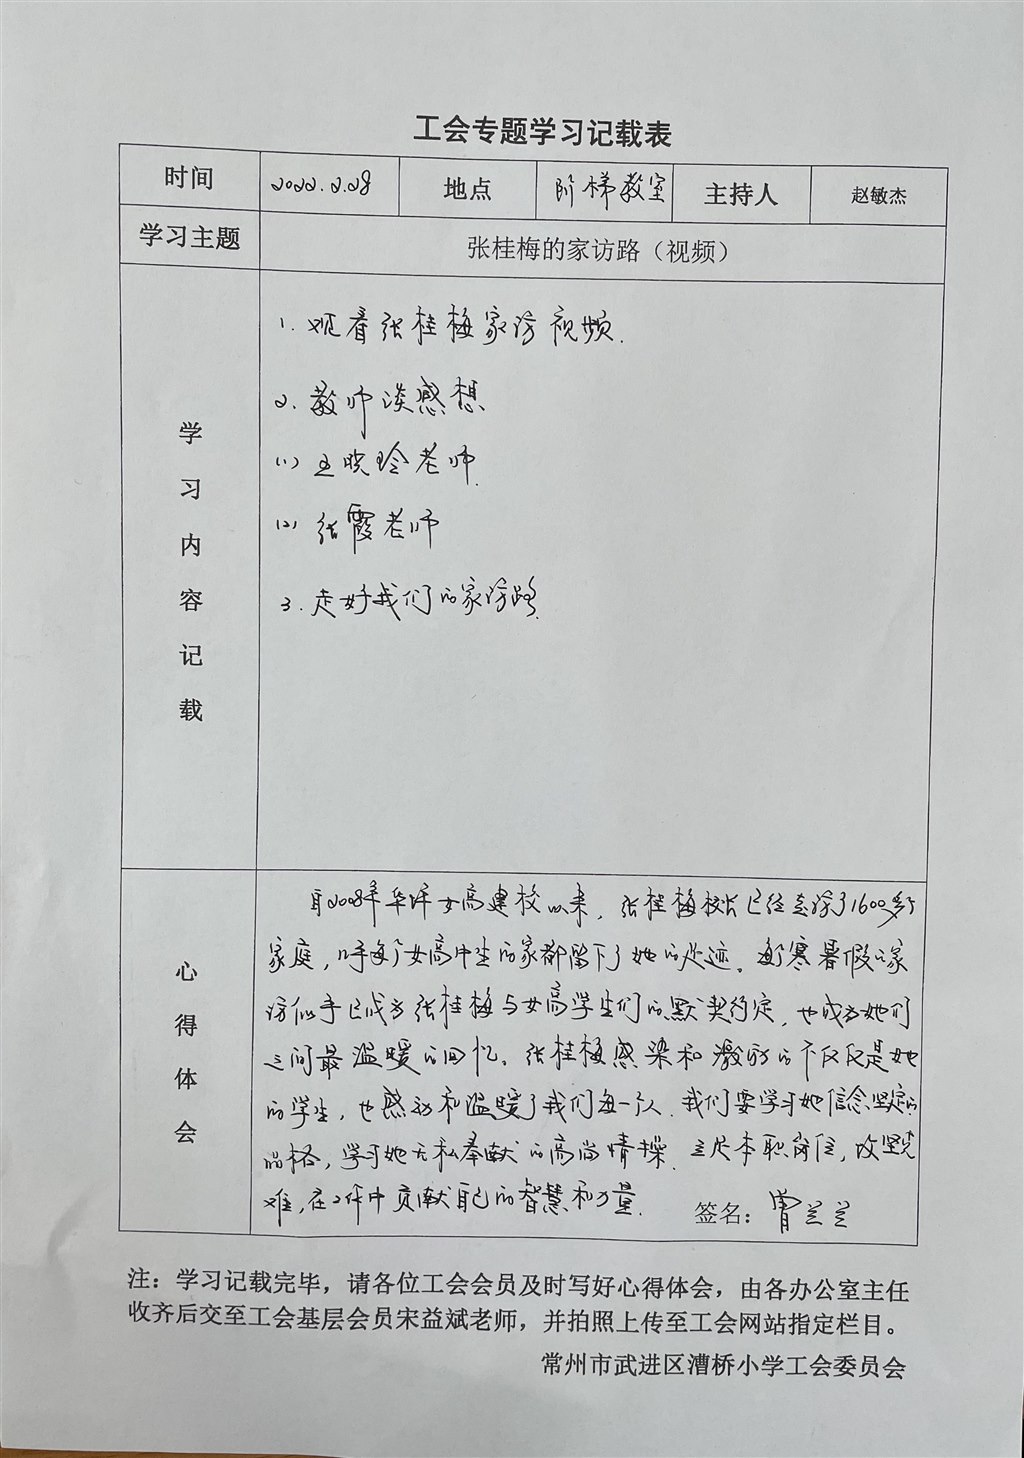 工会专题学习记载表
时间 2022.2.28 地点 阶梯教室 主持人 赵敏杰
学习主题 张桂梅的家访路（视频）
学习内容记载
1. 观看张桂梅家访视频.
2. 教师谈感想
(1) 王晓玲老师.
(2) 张霞老师
3. 走好我们的家访路.
心得体会
自2008年华坪女高建校以来，张桂梅校长已经走访了1600多个
家庭，几乎每个女高中生的家都留下了她的足迹。每个寒暑假的家
访似乎已成为张桂梅与女高学生们的默契约定，也成为她们
之间最温暖的回忆。张桂梅感染和激励的不仅仅是她
的学生，也感动和温暖了我们每一个人。我们要学习她信念坚定的
品格，学习她无私奉献的高尚情操。立足本职岗位，攻坚克
难，在工作中贡献自己的智慧和力量.
签名：曾兰兰
注：学习记载完毕，请各位工会会员及时写好心得体会，由各办公室主任
收齐后交至工会基层会员宋益斌老师，并拍照上传至工会网站指定栏目。
常州市武进区漕桥小学工会委员会